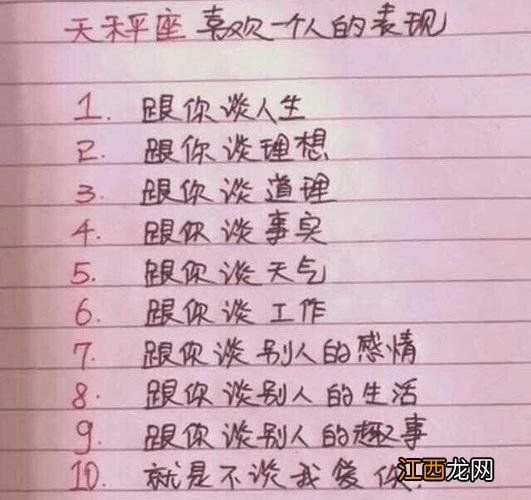 天秤座 喜欢一个人的表现
1. 跟你谈人生
2. 跟你谈理想
3. 跟你谈道理
4. 跟你谈事实
5. 跟你谈天气
6. 跟你谈工作
7. 跟你谈别人的感情
8. 跟你谈别人的生活
9. 跟你谈别人的趣事
10. 就是不谈我爱你
江西龙网